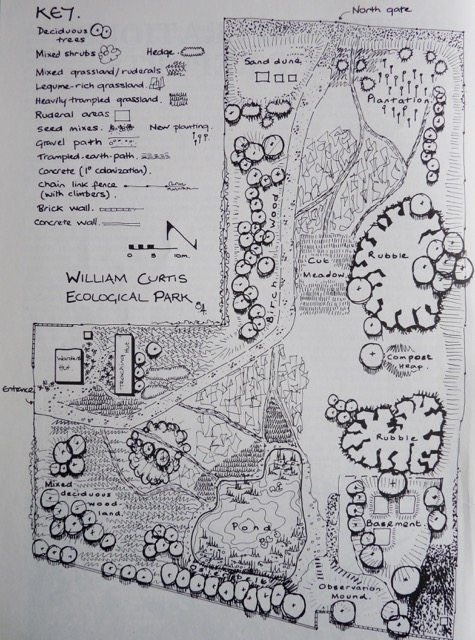 KEY.
Deciduous
trees
Mixed shrubs
Hedge.
Mixed grassland/ruderals
Legume-rich grassland.
Heavily-trampled grassland.
Ruderal areas
Seed mixes.
New planting.
Gravel path
Trampled earth path.
Concrete (1° colonization).
Chain link fence
(with climbers).
Brick wall.
Concrete wall.
0 5 10m.
N
WILLIAM CURTIS
ECOLOGICAL PARK
84
North gate
Sand dune.
Plantation
Birch Wood
Cut
Meadow
Rubble
Compost
Heap.
Entrance
Hut
Rubble
Mixed
deciduous
wood
land.
Pond
Basement
Observation
Mound